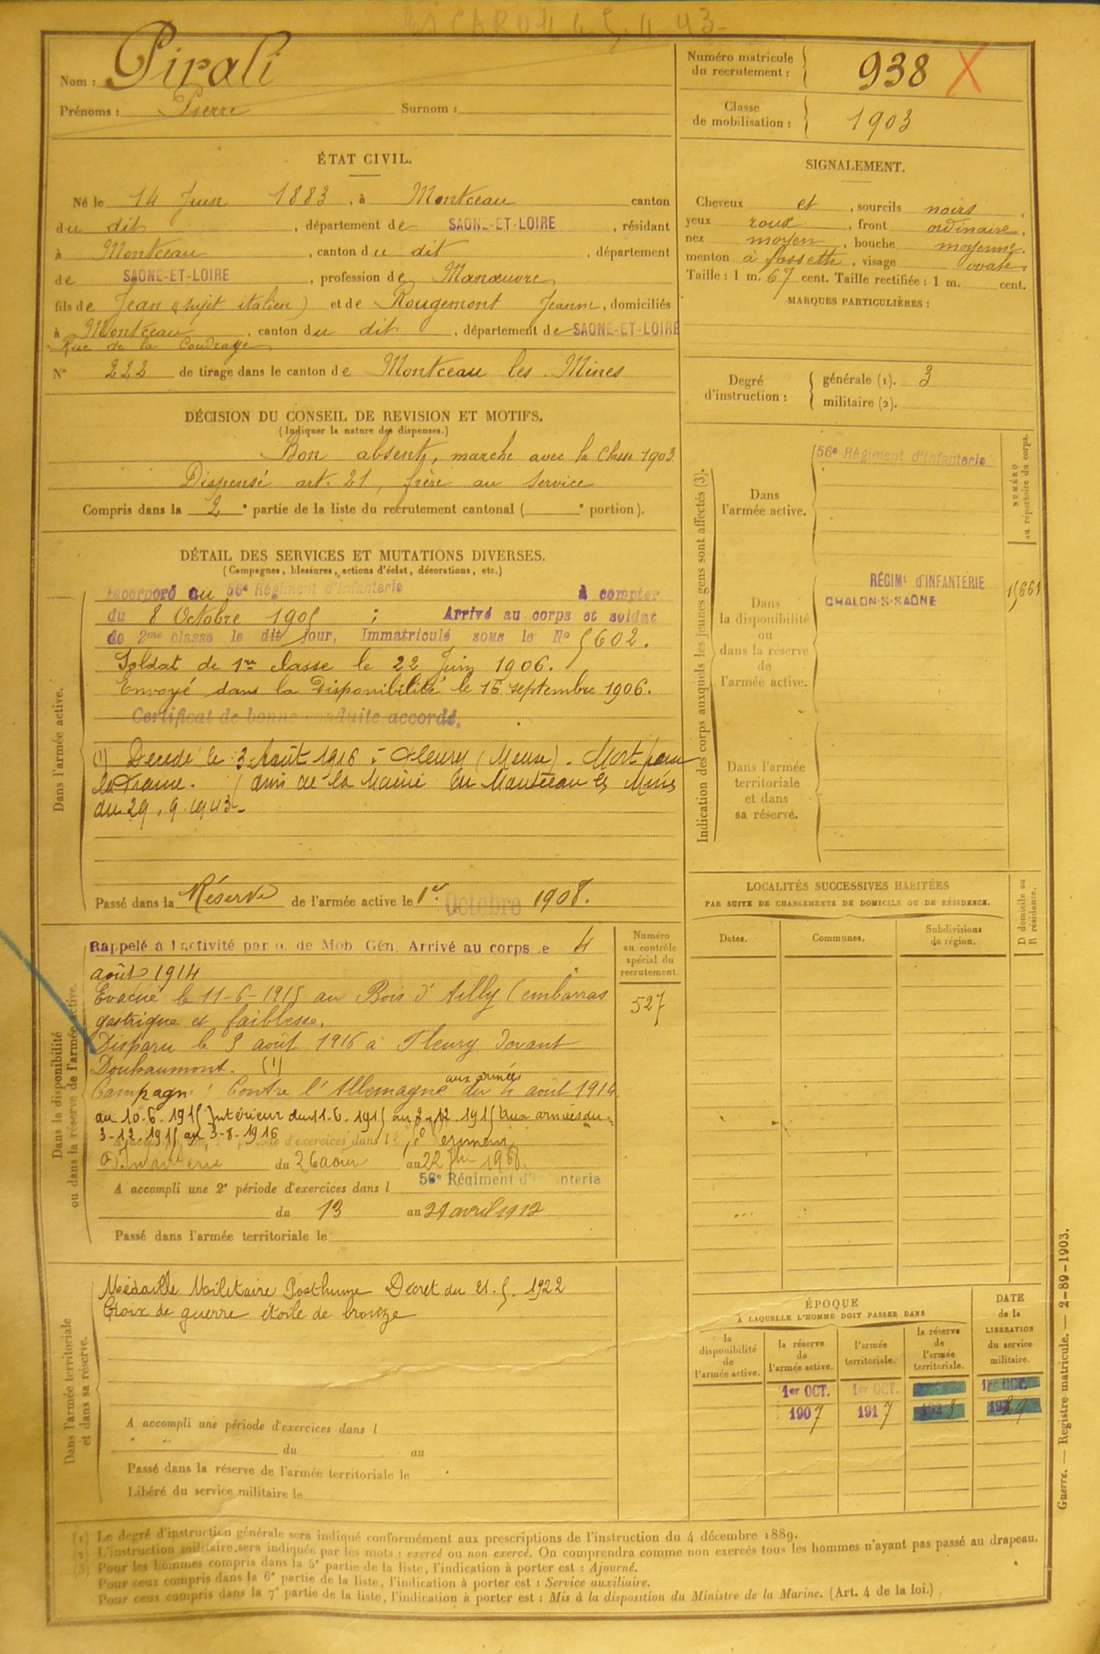 Nom : Pirali
Prénoms : Pierre Surnom :
Numéro matricule du recrutement : 938 X
Classe de mobilisation : 1903
ÉTAT CIVIL.
Né le 14 Juin 1883, à Montceau canton
du dit, département de SAONE-ET-LOIRE, résidant
à Montceau, canton du dit, département
de SAONE-ET-LOIRE, profession de Manœuvre
fils de Jean (sujet italien) et de Rougemont Jeanne, domiciliés
à Montceau, canton du dit, département de SAONE-ET-LOIRE
Rue de la Coudraye
N° 222 de tirage dans le canton de Montceau les Mines
SIGNALEMENT.
Cheveux et, sourcils noirs,
yeux roux, front ordinaire,
nez moyen, bouche moyenne,
menton à fossette, visage ovale.
Taille : 1 m. 67 cent. Taille rectifiée : 1 m. cent.
MARQUES PARTICULIÈRES :
Degré d'instruction : générale (1). 3
militaire (2).
DÉCISION DU CONSEIL DE REVISION ET MOTIFS.
(Indiquer la nature des dispenses.)
Bon absent, marche avec la classe 1903
Dispensé art. 21, frère au service
Compris dans la 2e partie de la liste du recrutement cantonal ( e portion).
DÉTAIL DES SERVICES ET MUTATIONS DIVERSES.
(Campagnes, blessures, actions d'éclat, décorations, etc.)
Dans l'armée active.
Incorporé au 56e Régiment d'Infanterie à compter
du 8 Octobre 1905 ; Arrivé au corps et soldat
de 2me classe le dit jour, Immatriculé sous le No 5602.
Soldat de 1re classe le 22 Juin 1906.
Envoyé dans la Disponibilité le 15 septembre 1906.
Certificat de bonne conduite accordé.
(1) Décédé le 3 Août 1916 à Fleury (Meuse). Mort pour
la France. (avis de la Mairie de Montceau les Mines
du 29.9.1943
Passé dans la Réserve de l'armée active le 1er Octobre 1907.
Indication des corps auxquels les jeunes gens sont affectés (3).
NUMÉRO au répertoire du corps.
Dans l'armée active.
56e Régiment d'Infanterie
Dans la disponibilité ou dans la réserve de l'armée active.
RÉGIMt D'INFANTERIE
CHALON-S-SAÔNE
Dans l'armée territoriale et dans sa réserve.
LOCALITÉS SUCCESSIVES HABITÉES
PAR SUITE DE CHANGEMENTS DE DOMICILE OU DE RÉSIDENCE.
Dates. Communes. Subdivisions de région. D domicile ou R résidence.
Dans la disponibilité ou dans la réserve de l'armée active.
Numéro au contrôle spécial du recrutement.
527
Rappelé à l'activité par o. de Mob. Gén. Arrivé au corps le 4
août 1914
Evacué le 11-6-1915 au Bois d'Ailly (embarras
gastrique et faiblesse.
Disparu le 3 août 1916 à Fleury devant
Douhaumont. (1)
Campagne : Contre l'Allemagne aux armées du 4 août 1914
au 10.6.1915 Intérieur du 11.6.1915 au 2.12.1915 aux armées du
3-12 1915 au 3-8-1916
d'exercices dans l
du 26 août au 22
A accompli une 2e période d'exercices dans l 56e Régiment d'Infanterie
du 13 au 21 avril 1912
Passé dans l'armée territoriale le
Dans l'armée territoriale et dans sa réserve.
Médaille Militaire Posthume Décret du 21.5.1922
Croix de guerre étoile de bronze
A accompli une période d'exercices dans l
du au
Passé dans la réserve de l'armée territoriale le
Libéré du service militaire le
ÉPOQUE
À LAQUELLE L'HOMME DOIT PASSER DANS
DATE de la LIBÉRATION du service militaire.
la disponibilité de l'armée active. la réserve de l'armée active. l'armée territoriale. la réserve de l'armée territoriale.
1er OCT. 1er OCT. 1er OCT.
1907 1917
Guerre. — Registre matricule. — 2-89-1903.
(1) Le degré d'instruction générale sera indiqué conformément aux prescriptions de l'instruction du 4 décembre 1889.
(2) L'instruction militaire sera indiquée par les mots : exercé ou non exercé. On comprendra comme non exercés tous les hommes n'ayant pas passé au drapeau.
(3) Pour les hommes compris dans la 5e partie de la liste, l'indication à porter est : Ajourné.
Pour ceux compris dans la 6e partie de la liste, l'indication à porter est : Service auxiliaire.
Pour ceux compris dans la 7e partie de la liste, l'indication à porter est : Mis à la disposition du Ministre de la Marine. (Art. 4 de la loi.)